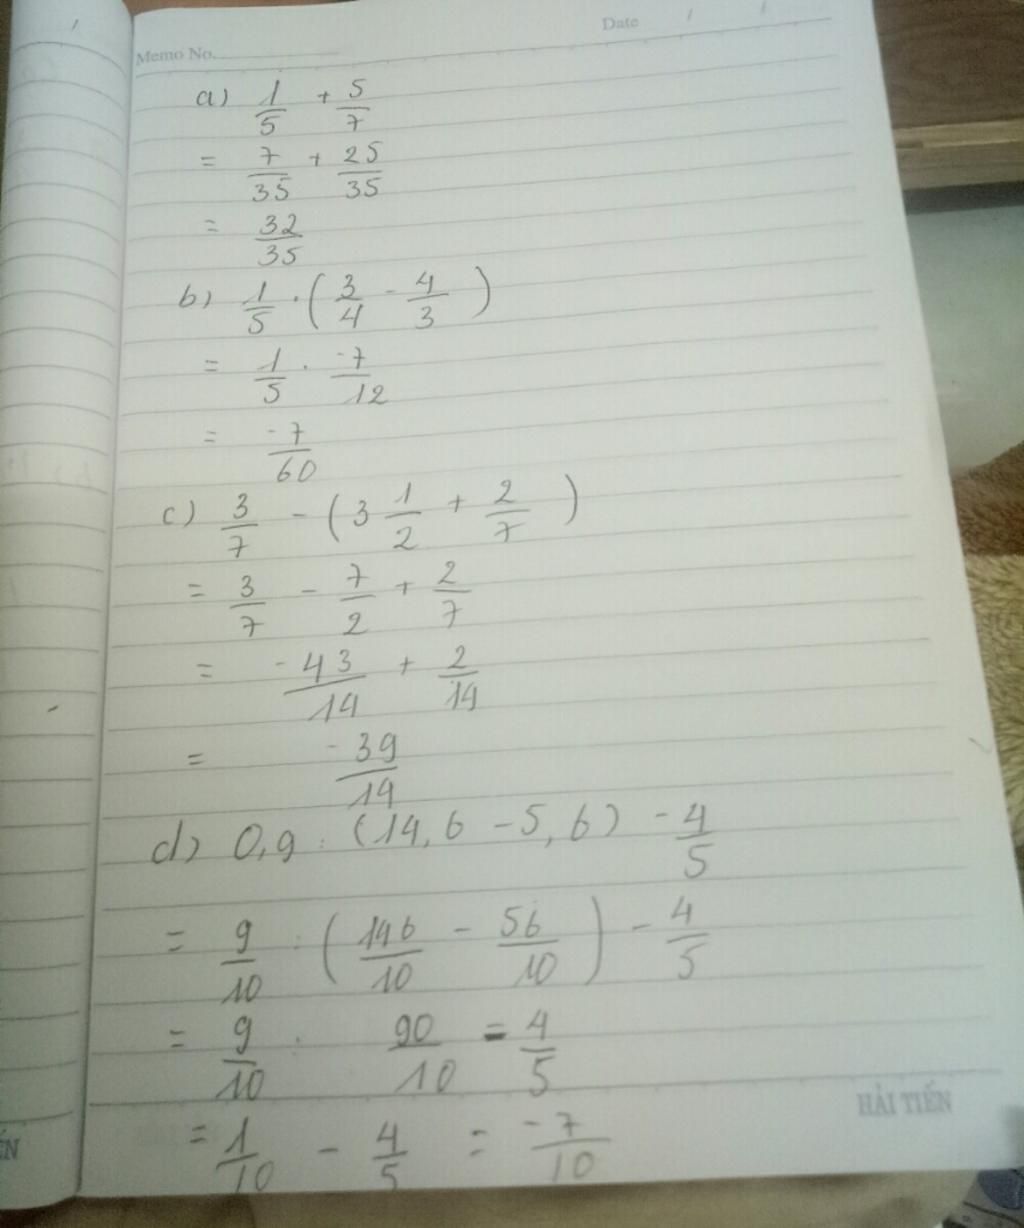 Date / /
Memo No.
a) 1/5 + 5/7
= 7/35 + 25/35
= 32/35
b) 1/5 . (3/4 - 4/3)
= 1/5 . -7/12
= -7/60
c) 3/7 - (3 1/2 + 2/7)
= 3/7 - 7/2 + 2/7
= -43/14 + 2/14
= -39/14
d) 0,9 : (14,6 - 5,6) - 4/5
= 9/10 : (146/10 - 56/10) - 4/5
= 9/10 : 90/10 - 4/5
= 1/10 - 4/5 = -7/10
HẢI TIẾN